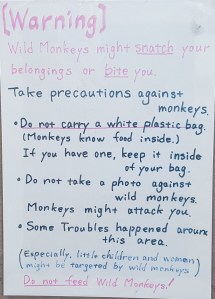 [Warning]
Wild Monkeys might snatch your
belongings or bite you.
Take precautions against
monkeys.
• Do not carry a white plastic bag.
(Monkeys know food inside.)
If you have one, keep it inside
of your bag.
• Do not take a photo against
wild monkeys.
Monkeys might attack you.
• Some Troubles happened around
this area.
(Especially, little children and women
might be targeted by wild monkeys
Do not feed Wild Monkeys!